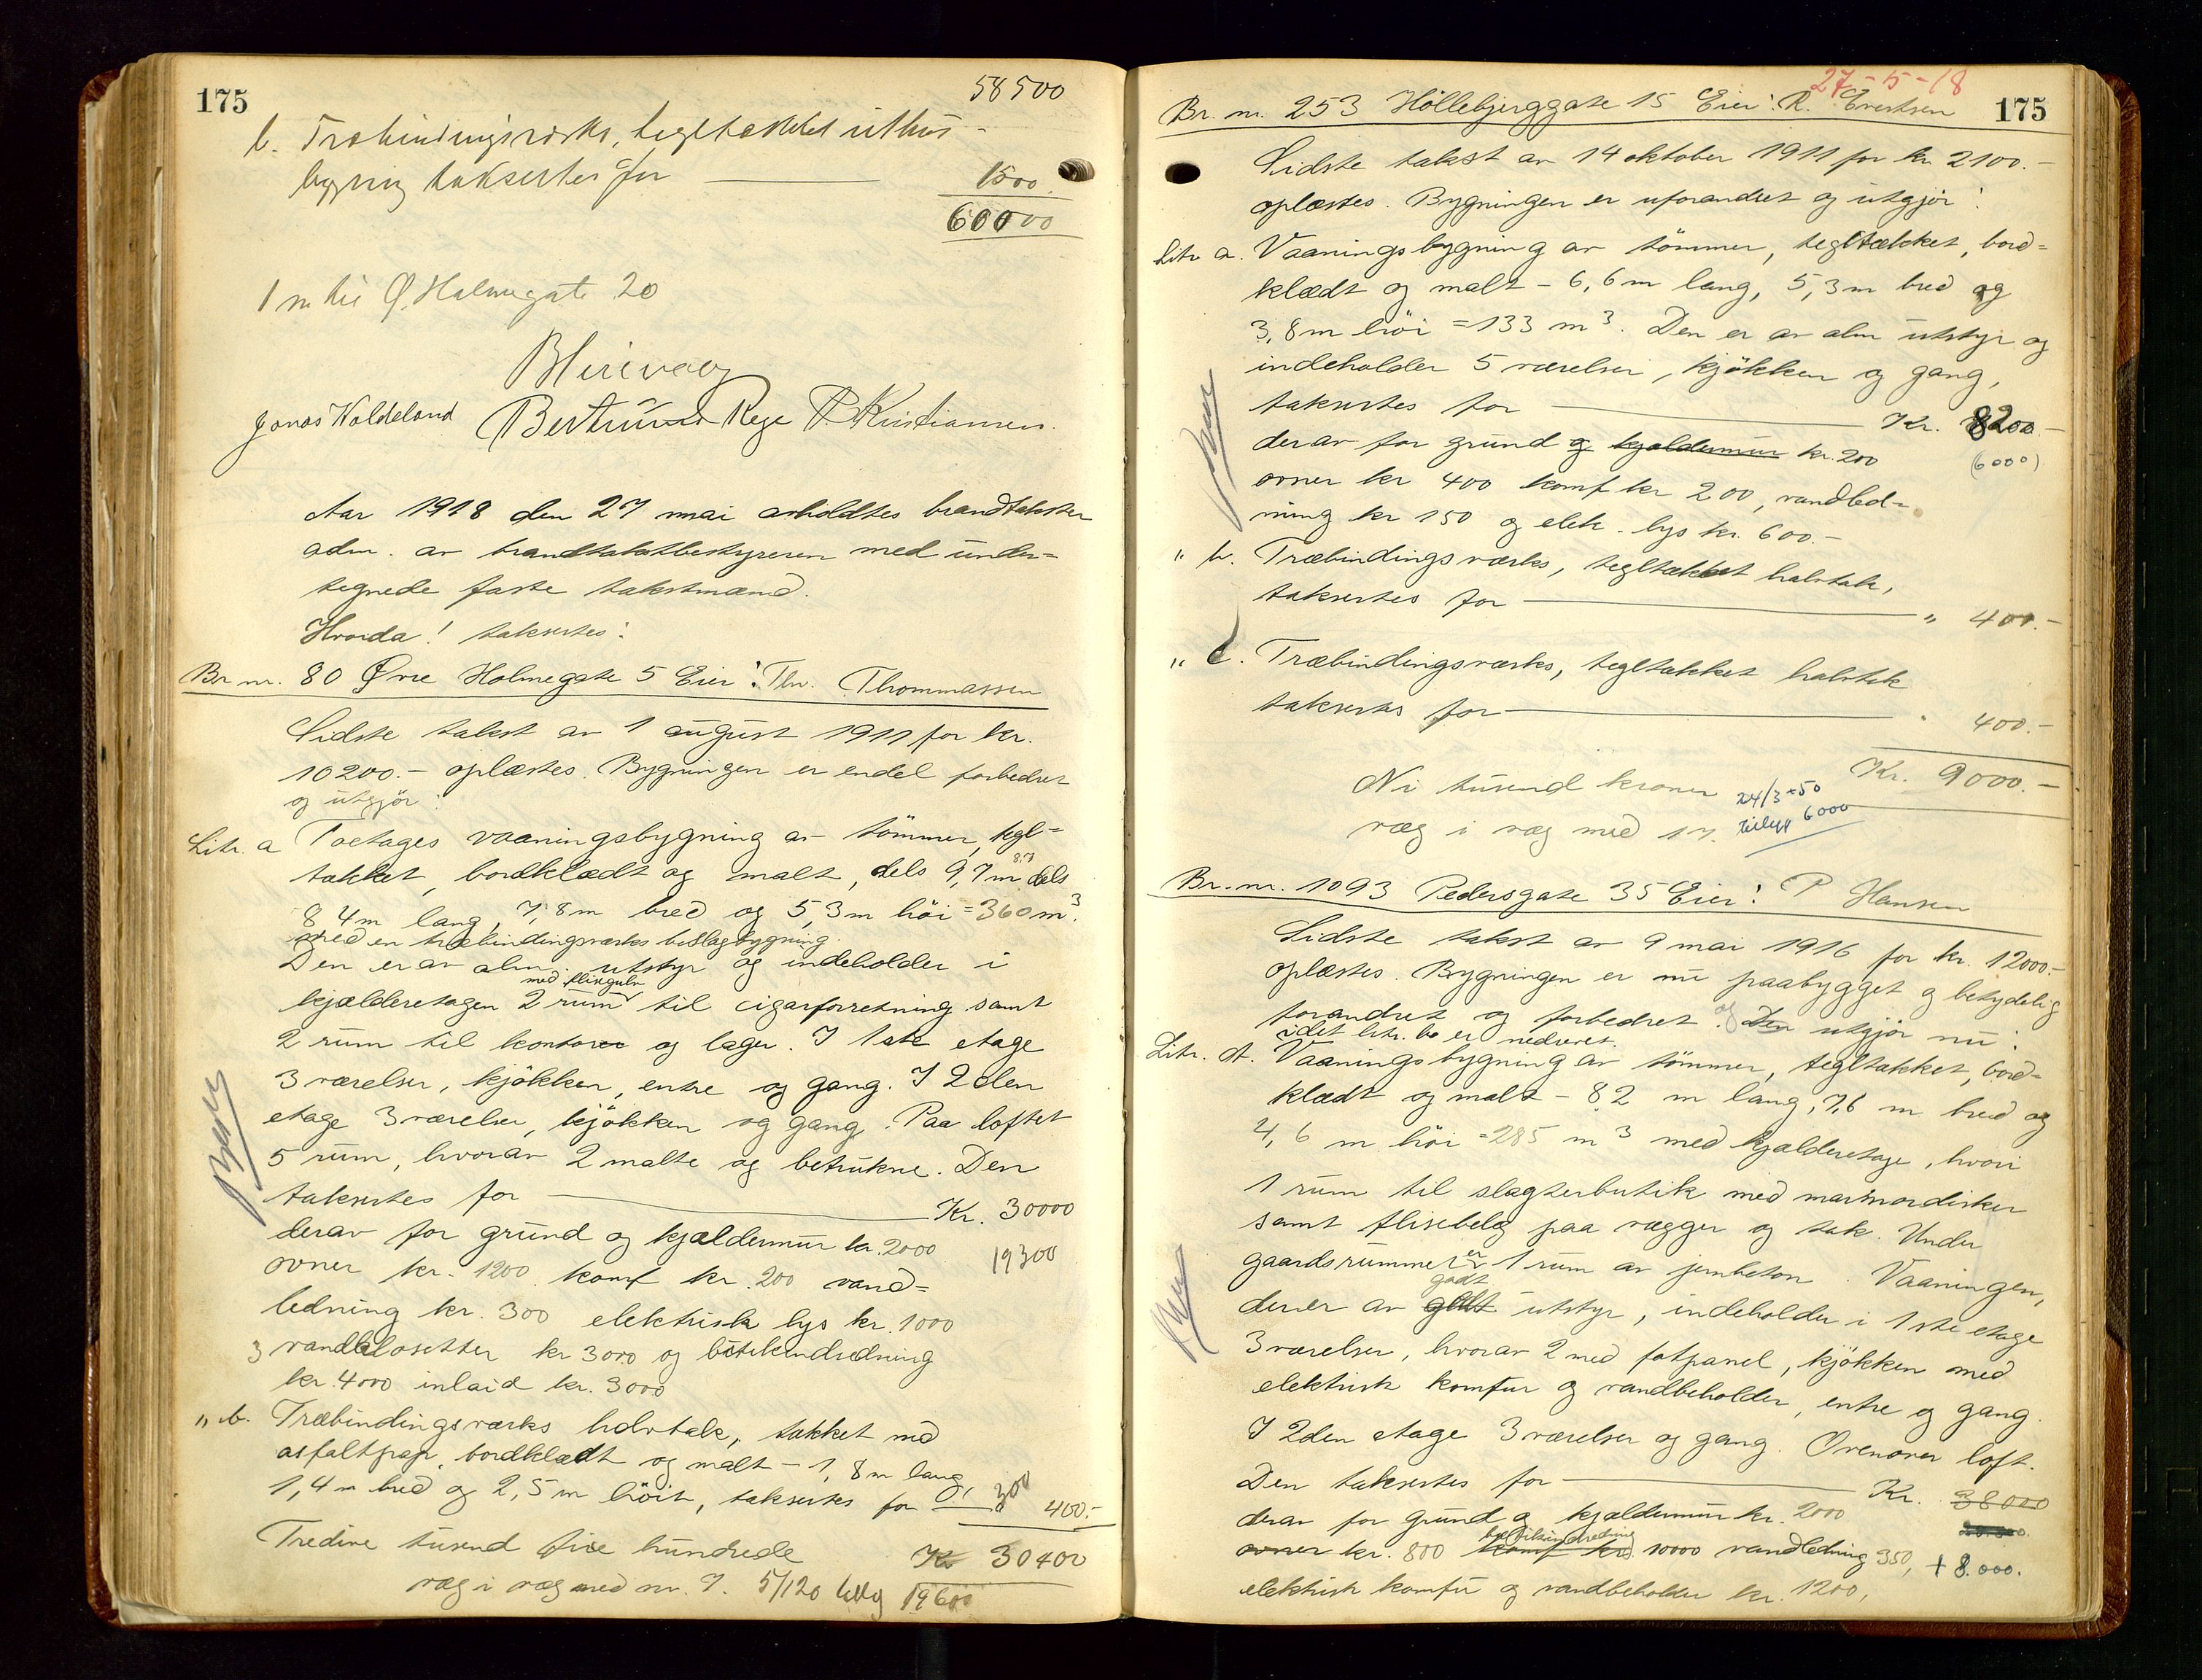 175
58500
b. Træbindingsverks, tegltækket uthus-
bygning taksertes for 1500.
60000
1 m til Ø. Holmegate 20
Jonas Waldeland Bertrand Rege P. Kristiansen.
Aar 1918 den 27 mai avholdtes brandtakster
adm. av brandtakstbestyreren med under-
tegnede faste takstmænd.
Hvorda! taksertes:
Br. nr. 80 Øvre Holmegate 5 Eier: Thv. Thommassen
Sidste takst av 1 august 1911 for kr.
10200.- oplæstes. Bygningen er endel forbedret
og utgjør:
Litr. a Toetages vaaningsbygning av tømmer, tegl-
tækket, bordklædt og malt, dels 9,7 m dels
8,4 m lang, 7,8 m bred og 5,3 m høi = 360 m³.
med en træbindingsverks beslagbygning
Den er av alm. utstyr og indeholder i
med flisgulv
kjælderetagen 2 rum til cigarforretning samt
2 rum til kontorer og lager. I 1ste etage
3 værelser, kjøkken, entre og gang. I 2den
etage 3 værelser, kjøkken og gang. Paa loftet
5 rum, hvorav 2 malte og betrukne. Den
taksertes for Kr. 30000
derav for grund og kjældermur kr. 2000 19300
ovner kr. 1200 komf kr. 200 vand-
ledning kr. 300 elektrisk lys kr. 1000
3 vandklosetter kr 3000 og butikindredning
kr. 4000 inlaid kr. 3000
" b. Træbindingsverks halvtak, tækket med
asfaltpap, bordklædt og malt - 1,8 m lang
1,4 m bred og 2,5 m høit, taksertes for 300 400.-
Tredive tusend fire hundrede Kr 30400
væg i væg med nr. 7. 5/120 19600
27-5-18
175
Br. nr. 253 Hòllebjerggate 15 Eier: R. Evertsen
Sidste takst av 14 oktober 1911 for kr 2100.-
oplæstes. Bygningen er uforandret og utgjør:
Litr a. Vaaningsbygning av tømmer, tegltækket, bord-
klædt og malt - 6,6 m lang, 5,3 m bred og
3,8 m høi = 133 m³. Den er av alm utstyr og
indeholder 5 værelser, kjøkken og gang,
taksertes for Kr. 8200.-
derav for grund og kjældermur kr. 200 (6000)
ovner kr 400 komf kr 200, vandled-
ning kr 150 og elek. lys kr. 600.-
" b. Træbindingsverks, tegltækket halvtak,
taksertes for " 400.-
" c. Træbindingsverks, tegltækket halvtak
taksertes for " 400.-
Kr. 9000.-
Ni tusend kroner 24/3-50
væg i væg med 17. tillegg 6000
Br. nr. 1093 Pedersgate 35 Eier: P Hansen
Sidste takst av 9 mai 1916 for kr. 12000.-
oplæstes. Bygningen er nu paabygget og betydelig
forandret og forbedret. og Den utgjør nu:
idet litr. b er nedrevet.
Litr. A. Vaaningsbygning av tømmer, tegltækket, bord-
klædt og malt - 8,2 m lang, 7,6 m bred og
4,6 m høi = 285 m³ med kjælderetage, hvori
1 rum til slagterbutik med marmordisker
samt flisebelæg paa vægger og tak. Under
gaardsrummet er 1 rum av jernbeton. Vaaningen,
godt
der er av godt utstyr, indeholder i 1ste etage
3 værelser, hvorav 2 med fotpanel, kjøkken med
elektrisk komfur og vandbeholder, entre og gang.
I 2den etage 3 værelser og gang. Ovenover loft.
Den taksertes for Kr. 38000
derav for grund og kjældermur kr. 2000
butikindredning
ovner kr. 800 komf kr. 10000 vandledning 350, + 8.000.
elektrisk komfur og vandbeholder kr. 1200,